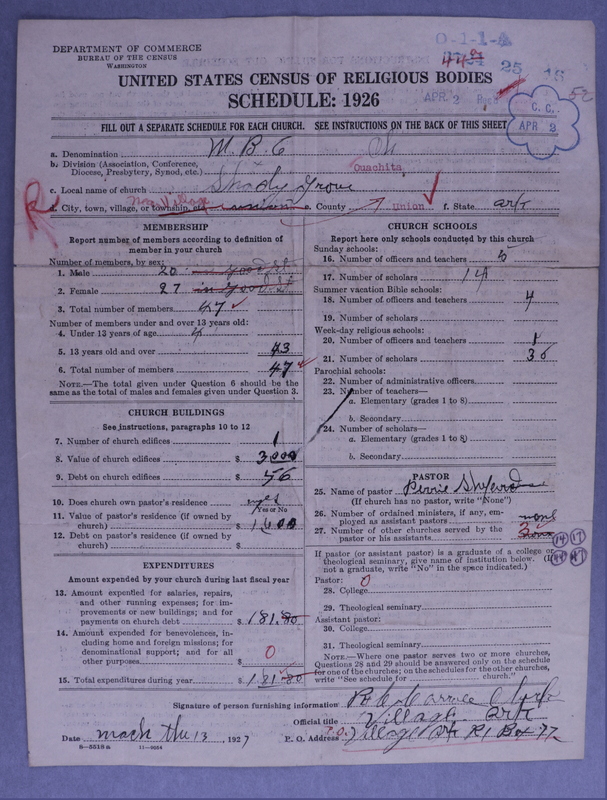 DEPARTMENT OF COMMERCE
BUREAU OF THE CENSUS
WASHINGTON
0-1-1-4
25 18
52
UNITED STATES CENSUS OF RELIGIOUS BODIES
SCHEDULE: 1926
APR. 2
C. C.
APR 2
FILL OUT A SEPARATE SCHEDULE FOR EACH CHURCH. SEE INSTRUCTIONS ON THE BACK OF THIS SHEET
a. Denomination M. B. C
b. Division (Association, Conference, Diocese, Presbytery, Synod, etc.) Ouachita
c. Local name of church Shady Grove
d. City, town, village, or township, etc. Near Village e. County Union f. State ark
MEMBERSHIP
Report number of members according to definition of
member in your church
Number of members, by sex:
1. Male 20 in good st.
2. Female 27 in good st
3. Total number of members 47
Number of members under and over 13 years old:
4. Under 13 years of age 4
5. 13 years old and over 43
6. Total number of members 47
NOTE.—The total given under Question 6 should be the
same as the total of males and females given under Question 3.
CHURCH BUILDINGS
See instructions, paragraphs 10 to 12
7. Number of church edifices 1
8. Value of church edifices $ 3000
9. Debt on church edifices $ 56
10. Does church own pastor's residence
Yes or No
11. Value of pastor's residence (if owned by
church) $
12. Debt on pastor's residence (if owned by
church) $
EXPENDITURES
Amount expended by your church during last fiscal year
13. Amount expended for salaries, repairs,
and other running expenses; for im-
provements or new buildings; and for
payments on church debt $ 181.80
14. Amount expended for benevolences, in-
cluding home and foreign missions; for
denominational support; and for all
other purposes $ 0
15. Total expenditures during year $ 181.80
CHURCH SCHOOLS
Report here only schools conducted by this church
Sunday schools:
16. Number of officers and teachers 5
17. Number of scholars 14
Summer vacation Bible schools:
18. Number of officers and teachers 4
19. Number of scholars
Week-day religious schools:
20. Number of officers and teachers 1
21. Number of scholars 30
Parochial schools:
22. Number of administrative officers
23. Number of teachers—
a. Elementary (grades 1 to 8)
b. Secondary
24. Number of scholars—
a. Elementary (grades 1 to 8)
b. Secondary
PASTOR
25. Name of pastor
(If church has no pastor, write "None")
26. Number of ordained ministers, if any, em-
ployed as assistant pastors none
27. Number of other churches served by the
pastor or his assistants 3
14 17
If pastor (or assistant pastor) is a graduate of a college or
theological seminary, give name of institution below. (If
not a graduate, write "No" in the space indicated.)
Pastor: 0
28. College
29. Theological seminary
Assistant pastor:
30. College
31. Theological seminary
NOTE.—Where one pastor serves two or more churches,
Questions 28 and 29 should be answered only on the schedule
for one of the churches; on the schedules for the other churches,
write "See schedule for church."
Signature of person furnishing information
Official title Village ark
Date mach the 13, 1927 P. O. Address Village ark R1 Box 77
8—5518a 11—9054